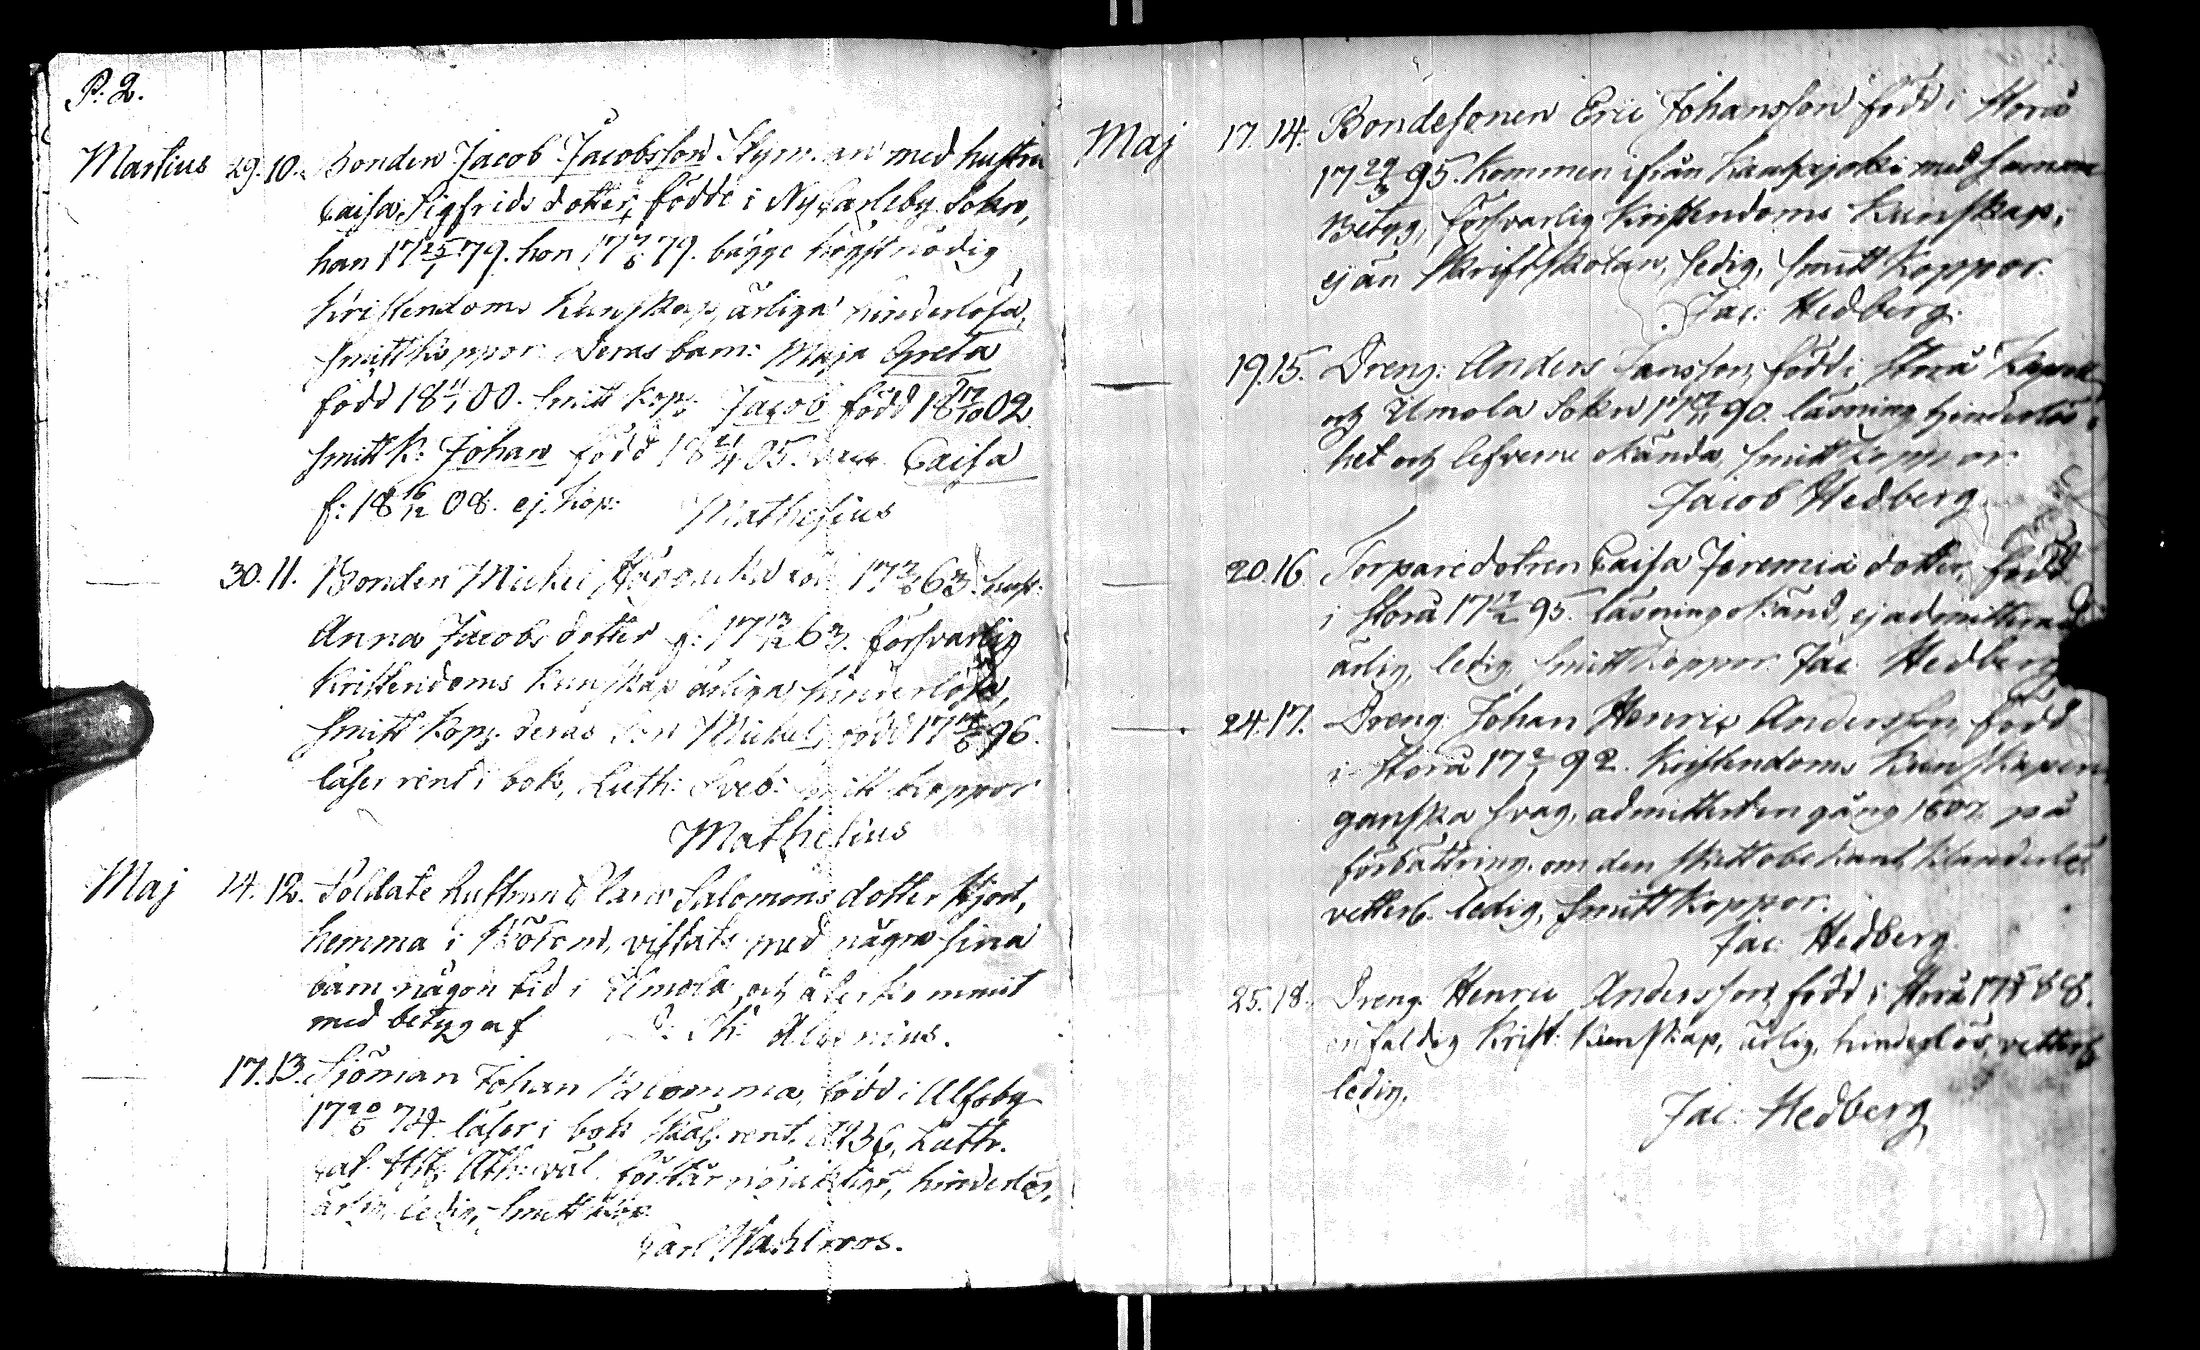 P. 2.
Martius 29. 10. Bonden Jacob Jacobsson med hustru
Caisa Sigfrids dotter, födde i NyCarleby Sokn,
han 17 25/1 79. hon 17 7/6 79. bägge högstnödig
Kristendoms Kunskap, ärliga hinderlösa,
Smittkoppor. Deras barn: Maja Greta
född 18 11/1 00. Smitt kop. Jacob född 18 17/10 02.
Smitt k: Johan född 18 21/4 05. Caisa
f: 18 16/12 08. ej kop: Mathesius
30. 11. Bonden Michel 17 63. hust:
Anna Jacobs dotter f: 17 13/12 63. försvarlig
Kristendoms Kunskap ärliga hinderlösa,
Smitt Kop: deras Son Michel, född 17 96.
läser rent i bok, Luth: Sveb: Smitt koppor
Mathesius
Maj 14. 12. Soldate hustrun Clara Salomons dotter
hemma i vistats med några sina
barn någon tid i Ilmola och återkommit
med betyg af
17. 13. Sjöman Johan Blomma, född i Ulfsby
17 20/6 74. läser i bok rent, Luth.
väl. hinderlös,
ärlig, ledig, Smitt kop
Carl Wahlroos.
Maj 17. 14. Bondesonen Eric Johansson född i Storå
17 95. Kommen ifrån Kauhajoki med samma
Betyg, försvarlig Kristendoms Kunskap,
ej än Skriftskolan, ledig, Smitt Koppor.
Jac: Hedberg.
19. 15. Dreng: Anders Jansson, född i Storå Capell
och Ilmola Sokn 17 90. läsning hinderlös-
het och lefverne okända, Smittkoppor.
Jacob Hedberg
20. 16. Torparedotren Caisa Jeremiæ dotter, född
i Storå 17 95. läsning okänd, ej admitterad
ärlig, ledig, Smittkoppor. Jac: Hedberg
24. 17. Dreng Johan Henric Andersson, född
i Storå 17 2/1 92. Kristendoms Kunskapen
ganska svag, admitterd en gång 1807 på
förbättring, om den skett obekant,
vetterl. ledig, Smitt Koppor.
Jac: Hedberg.
25. 18. Dreng: Henric Andersson, född i Storå 17 88.
enfaldig Krist: Kunskap, ärlig, hinderlös, vetterl:
ledig.
Jac: Hedberg